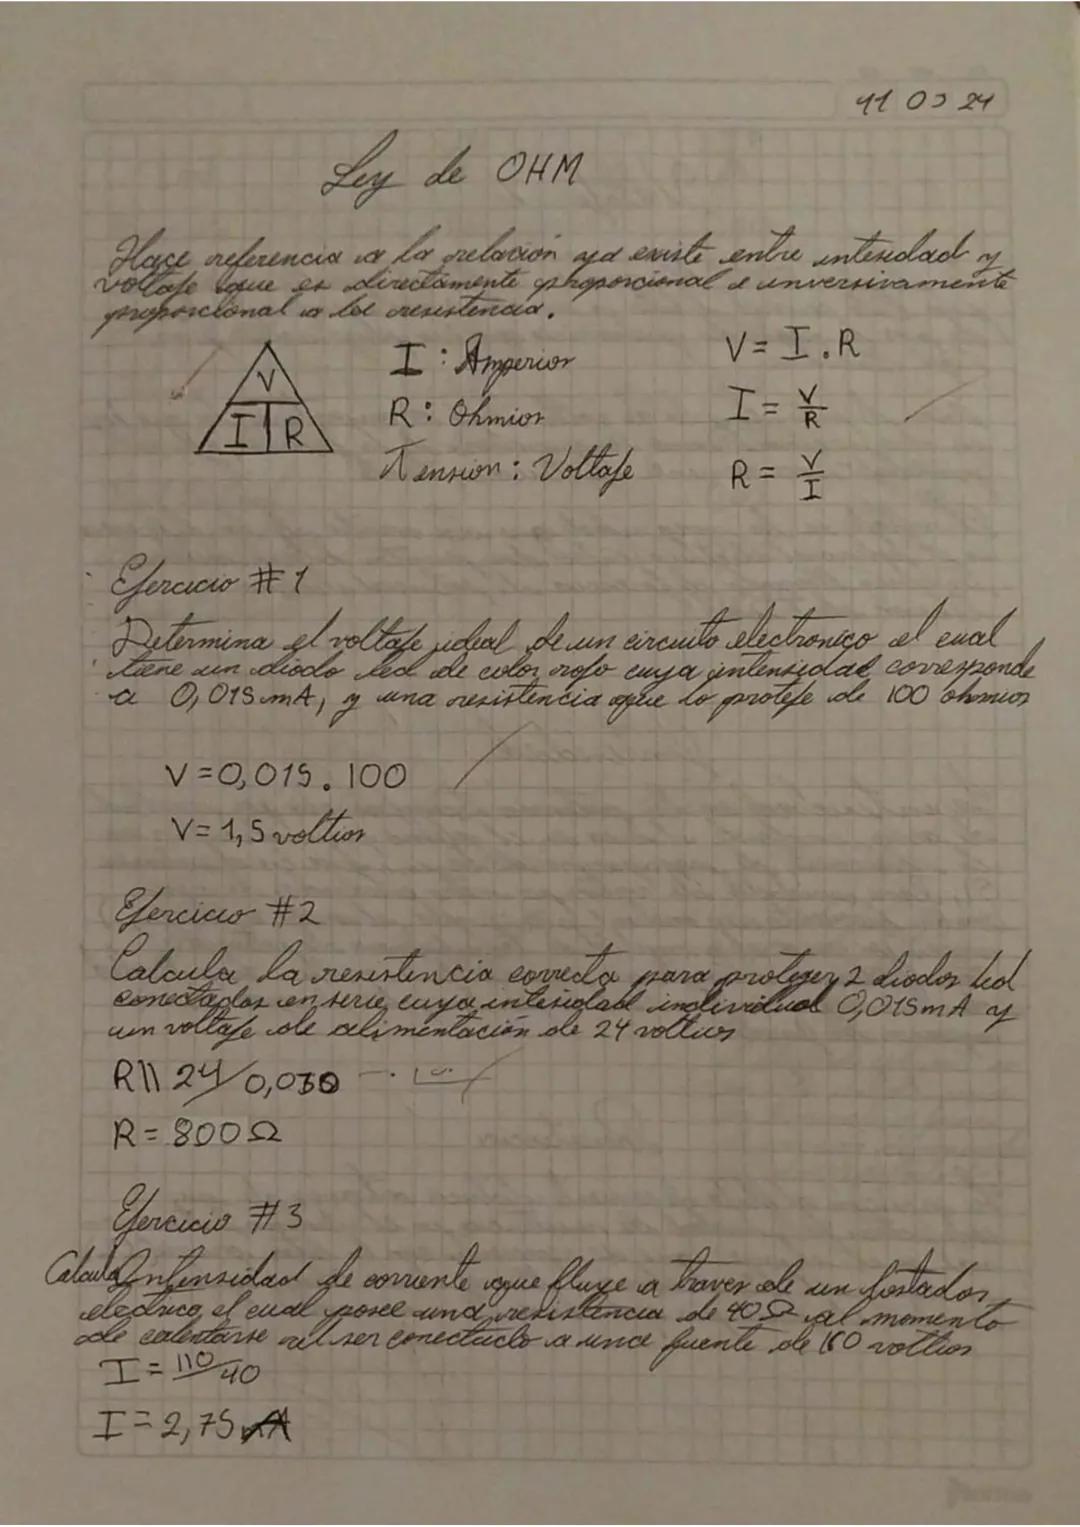 11 03 24
Ley de OHM
Hace referencia a la relación que existe entre intesidad y
voltaje que es directamente proporcional e inversivamente
proporcional a la resistencia.
V
I R
I : Amperios
R : Ohmios
Tension : Voltaje
V = I . R
I = V/R
R = V/I
Ejercicio #1
Determina el voltaje ideal de un circuito electronico el cual
tiene un diodo led de color rojo cuya intensidad corresponde
a 0,015 mA, y una resistencia que lo proteje de 100 ohmios
V = 0,015 . 100
V = 1,5 voltios
Ejercicio #2
Calcula la resistencia correcta para proteger 2 diodos led
conectados en serie, cuya intesidad individual 0,015 mA y
un voltaje de alimentación de 24 voltios
R 24/0,030
R = 800 Ω
Ejercicio #3
Calcula Intensidad de corriente que fluye a traves de un tostador
electrico, el cual posee una resistencia de 40 Ω al momento
de calentarse al ser conectado a una fuente de voltios
I = 110/40
I = 2,75 A